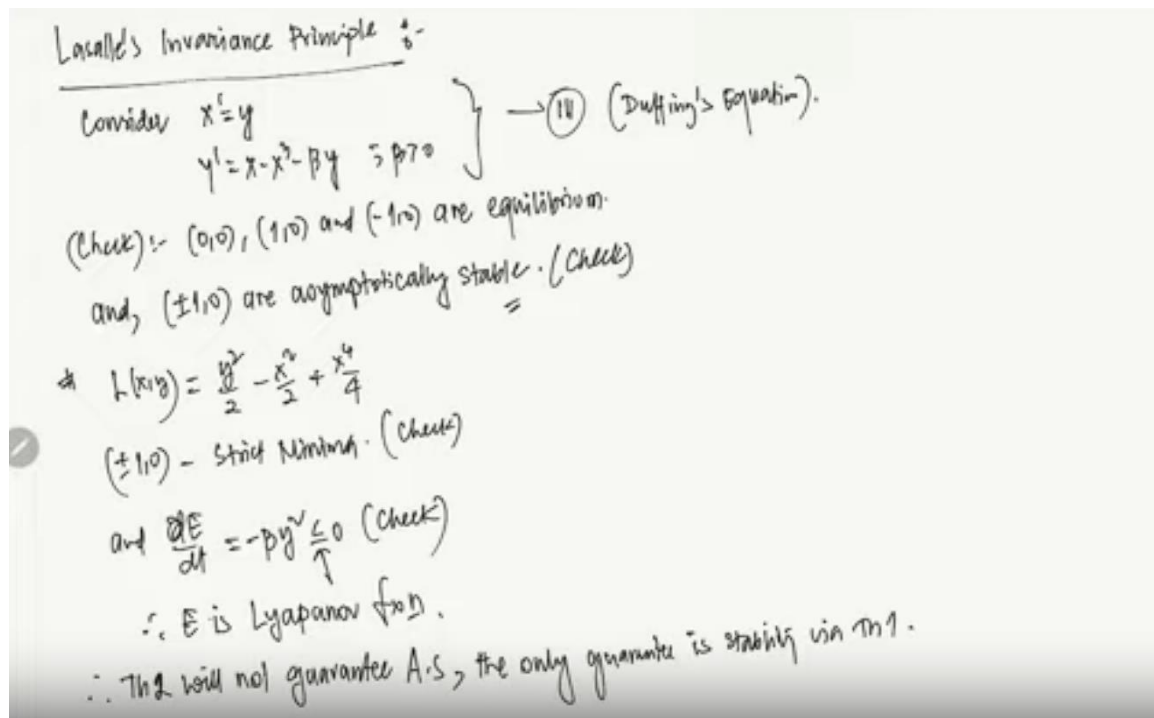 Lasalle's Invariance Principle :-
Consider x' = y
y' = x - x³ - βy ; β>0 } → (IV) (Duffing's Equation).
(Check) :- (0,0), (1,0) and (-1,0) are equilibrium.
and, (±1,0) are asymptotically stable. (Check)
* L(x,y) = y²/2 - x²/2 + x⁴/4
(±1,0) - Strict Minima. (Check)
and dE/dt = -βy² ≤ 0 (Check)
∴ E is Lyapanov fxn.
∴ Th 2 will not guarantee A.S, the only guarantee is stability via Th 1.